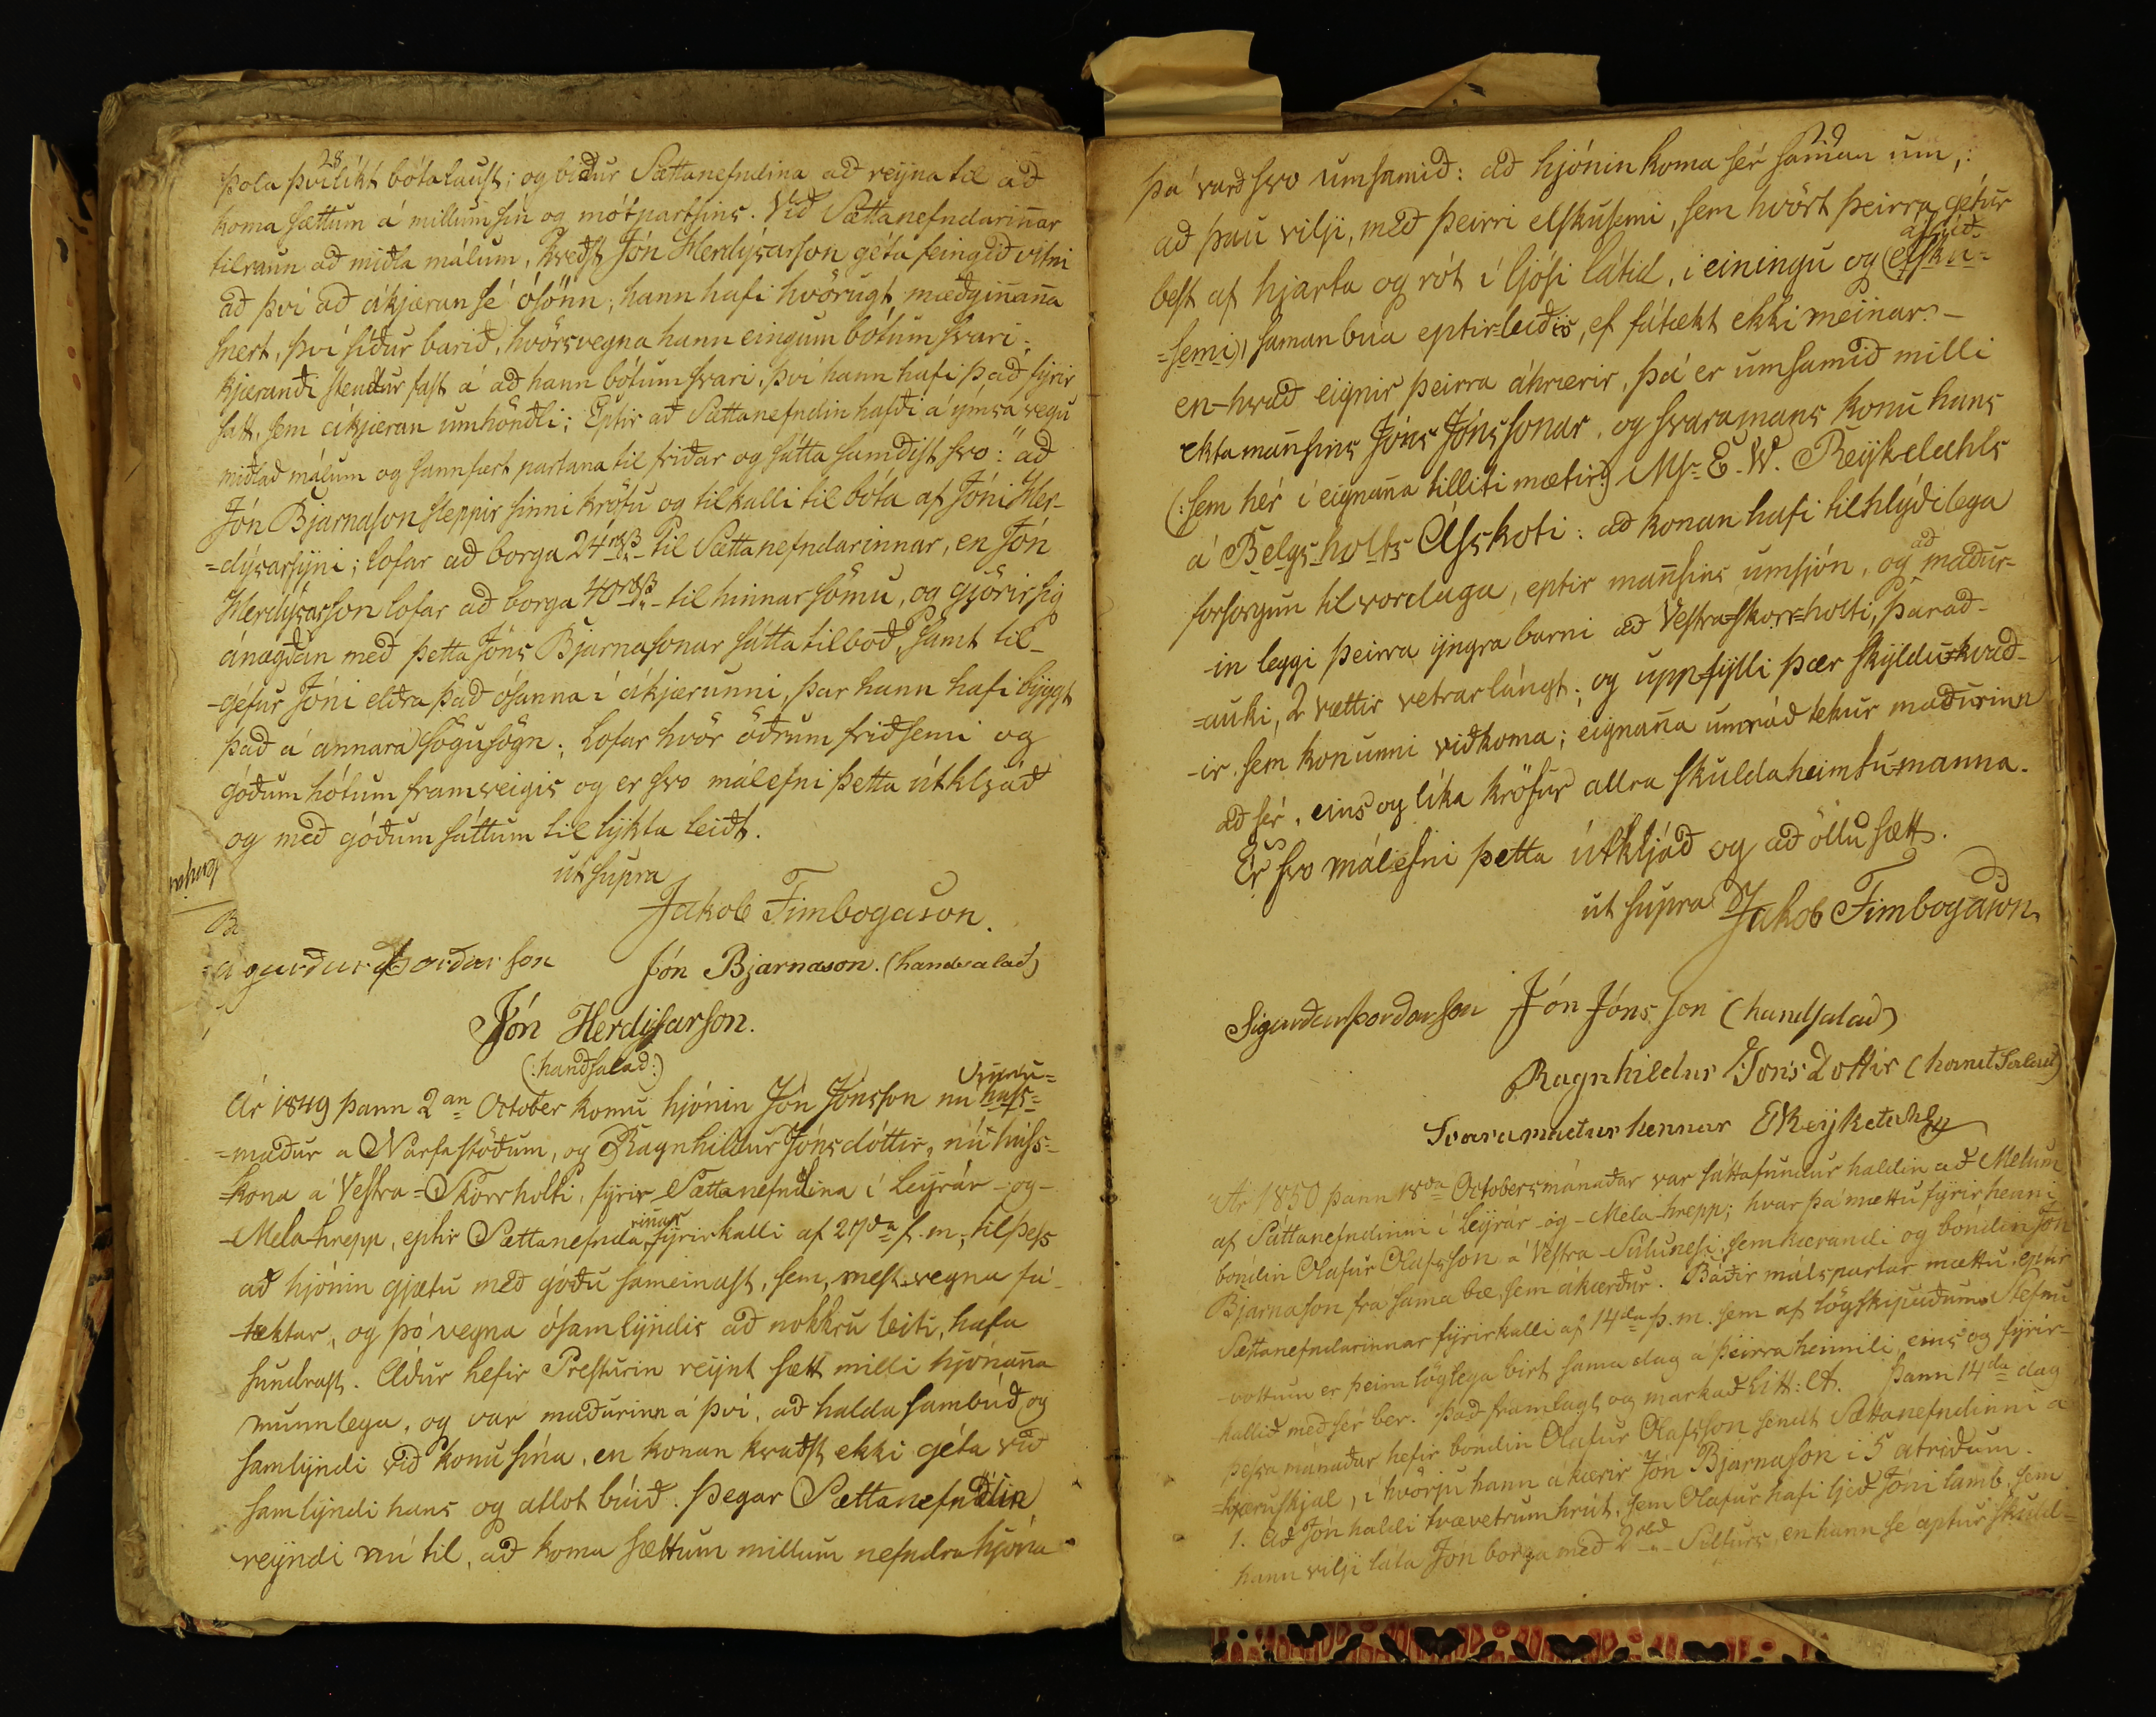 28
þola þvílíkt bótalaust; og biður Sættanefndina að reyna til að
koma sættum á millum sín og mótpartsins. Við Sættanefndarinnar
tilraun að miðla málum, kveðst Jón Herdýsarson géta feingið vitni
að því að ákjæran sé ósönn; hann hafi hvörugt mæðginanna
snert, því síður barið, hvörsvegna hann eingum bótum svari;
kjærandi stendur fast á að hann bótum svari, því hann hafi það fyrir
satt, sem ákjæran umhöndli; Eptir að Sættanefndin hafði á ýmsa vegu
miðlað málum og sannfært partana til friðar og sátta samdist svo: "að
Jón Bjarnason sleppir sinni kröfu og tilkalli til bóta af Jóni Her-
=dýsarsyni; lofar að borga 24 rbß til Sættanefndarinnar, en Jón
Herdýsarson lofar að borga 40 rbß til hinnar sömu, og gjörir sig
ánægðan með þetta Jóns Bjarnasonar sáttatilboð, samt til-
-géfur Jóni eldra það ósanna í ákjærunni, þar hann hafi byggt
það á annara sögusögn; Lofar hvör öðrum friðsemi og
góðum hótum framveigis og er svo málefni þetta útkljáð
og með góðum sáttum til lykta leidt.
út supra
Jákob Finnbogason.
Sigurður Þorðarson Jón Bjarnason. (handsalað)
Jón Herdýsarson.
(:handsalað:)
Ár 1849 þann 2an October komu hjónin Jón Jónsson nú vinnu=
huss=
=maður a Narfastöðum, og Ragnhildur Jónsdóttir, nú húss=
=kona á Vestra=Skorrholti, fyrir Sættanefndina í Leyrár-og-
-Mela-hrepp, eptir Sættanefndarinnar fyrirkalli af 27da f. m., til þess
að hjónin gjætu með góðu sameinast, sem, mest vegna fá-
-tæktar, og þó vegna ósamlyndis að nokkru leiti, hafa
sundrast. Aður hefir Presturin reynt sætt milli hjónanna
munnlega, og var maðurinn á því, að halda sambúð og
samlyndi við konu sína, en konan kvaðst ekki géta við
samlyndi hans og atlot búið. Þegar Sættanefndin
reyndi nú til, að koma sættum millum nefndra hjóna
29
þá varð svo umsamið: að hjónin koma sér saman um,:
að þau vilji, með þeirri elskusemi, sem hvört þeirra getur
best af hjarta og rót í ljósi látið, í einingu og (elsku=
ástúð
=semi), saman búa eptirleiðis, ef fátækt ekki meinar. -
en-hvað eignir þeirra áhrærir, þá er umsamið milli
ektamannsins Jóns Jónssonar, og svaramans konu hans
(:sem hér í eignanna tilliti mætir:) Mr. E. W. Reykdahls
á Belgsholts Asskoti: að konan hafi tilhlýðilega
forsorgun til vordaga, eptir mannsins umsjón, og að maður=
-in leggi þeirra yngra barni að Vestra=Skorr=holti, þarað-
=auki, 2 vættir vetrarlángt; og uppfylli þær skyldu=kvað-
-ir, sem konunni viðkoma; eignanna umráð tekur maðurinn
að sér, eins og líka kröfur allra skuldaheimtu-manna.
Er svo málefni þetta útkljáð og að öllu sætt.
ut supra Jakob Finnbogason
Sigurðurþorðarson Jón Jónsson (handsalað)
Ragnhildur Jons Dottir (handsalað)
Svaramaður hennar EReykdahl
Ár 1850 þann 18da Octobersmánaðar var sáttafundur haldin að Melum
af Sáttanefndinni í Leyrár-og-Mela-hrepp; hvar þá mættu fyrir henni
bóndin Olafur Olafsson á Vestra-Súlunesi, sem kærandi og bóndin Jón
Bjarnason fra sama bæ, sem ákærður. Báðir málspartar mættu, eptir
Sættanefndarinnar fyrirkalli af 14da þ. m. sem af lögskipuðum Stefnu
-vottum er þeim löglega birt sama dag a þeirra heimili, eins og fyrir-
-kallið með sér ber. það framlagt og markað Litt: A. Þann 14da dag
þessa mánaðar hefir bóndin Olafur Olafsson sendt Sættanefndinni á
=kjæruskjal, í hvörju hann ákærir Jón Bjarnason í 5 atriðum.
1. Að Jón haldi tvævetrum hrút, sem Olafur hafi ljeð Jóni lamb, sem
hann vilji láta Jón borga með 2 rbd Silfurs, en hann se aptur skuld=